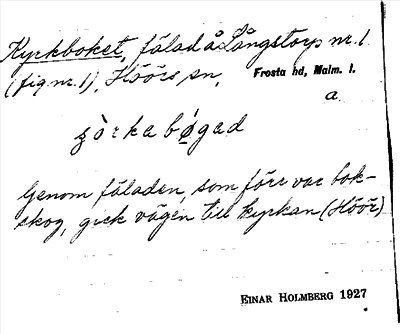 Kyrkboket, fälad å Långstorp nr. 1
(fig nr. 1), Höörs sn, Frosta hd, Malm. l.
a.
Genom fäladen, som förr var bok-
skog, gick vägen till kyrkan (Höör)
EINAR HOLMBERG 1927